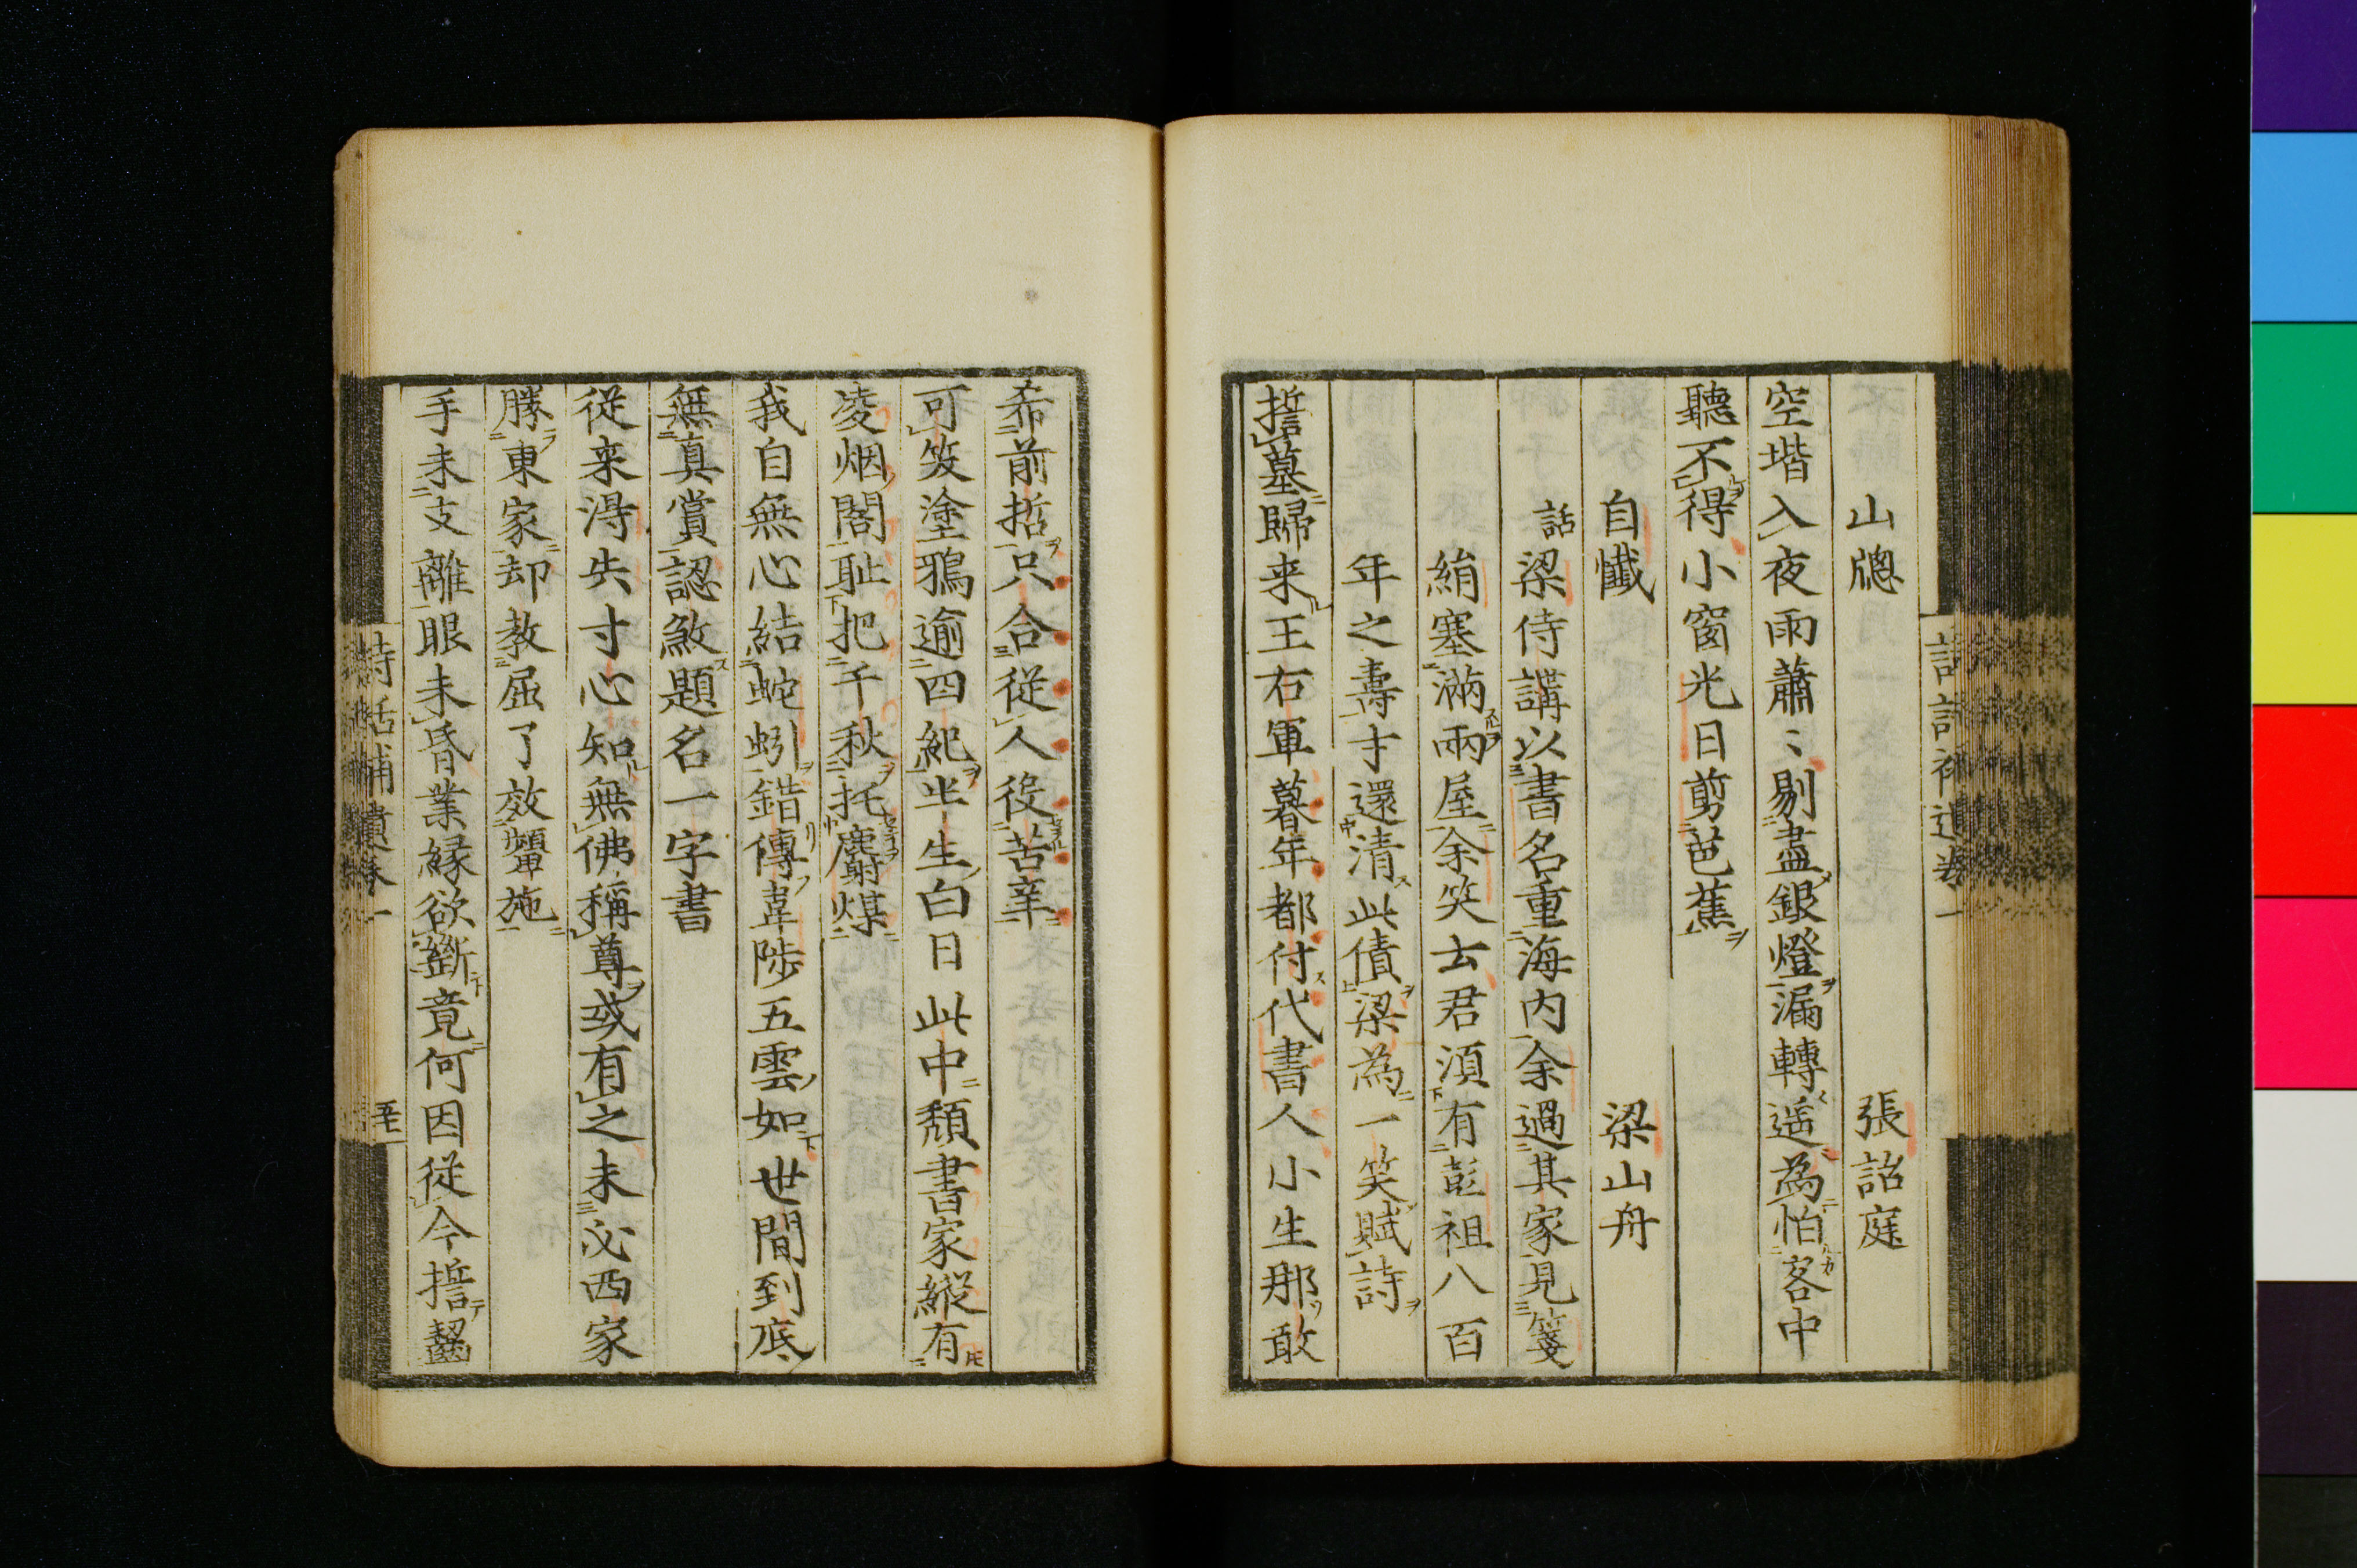 山牕 張詔庭
空堦入夜雨蕭〻剔盡銀燈漏轉遥為怕客中
聽不得小窗光日剪芭蕉
自懺 梁山舟
話梁侍講以書名重海内余過其家見箋
絹塞滿兩屋余笑云君須有彭祖八百
年之壽才還清此債梁為一笑賦詩
誓墓歸来王右軍暮年都付代書人小生那敢
希前哲只合從人役苦辛
可笑塗鴉逾四紀半生白日此中頹書家縱有
凌烟閣耻把千秋托麝煤
我自無心結蛇蚓錯傳韋陟五雲如世間到底
無真賞認煞題名一字書
從来得失寸心知無佛稱尊或有之未必西家
勝東家却教屈了效顰施
手未支離眼未昏業緣欲斷竟何因從今誓齧
詩話補遺卷一